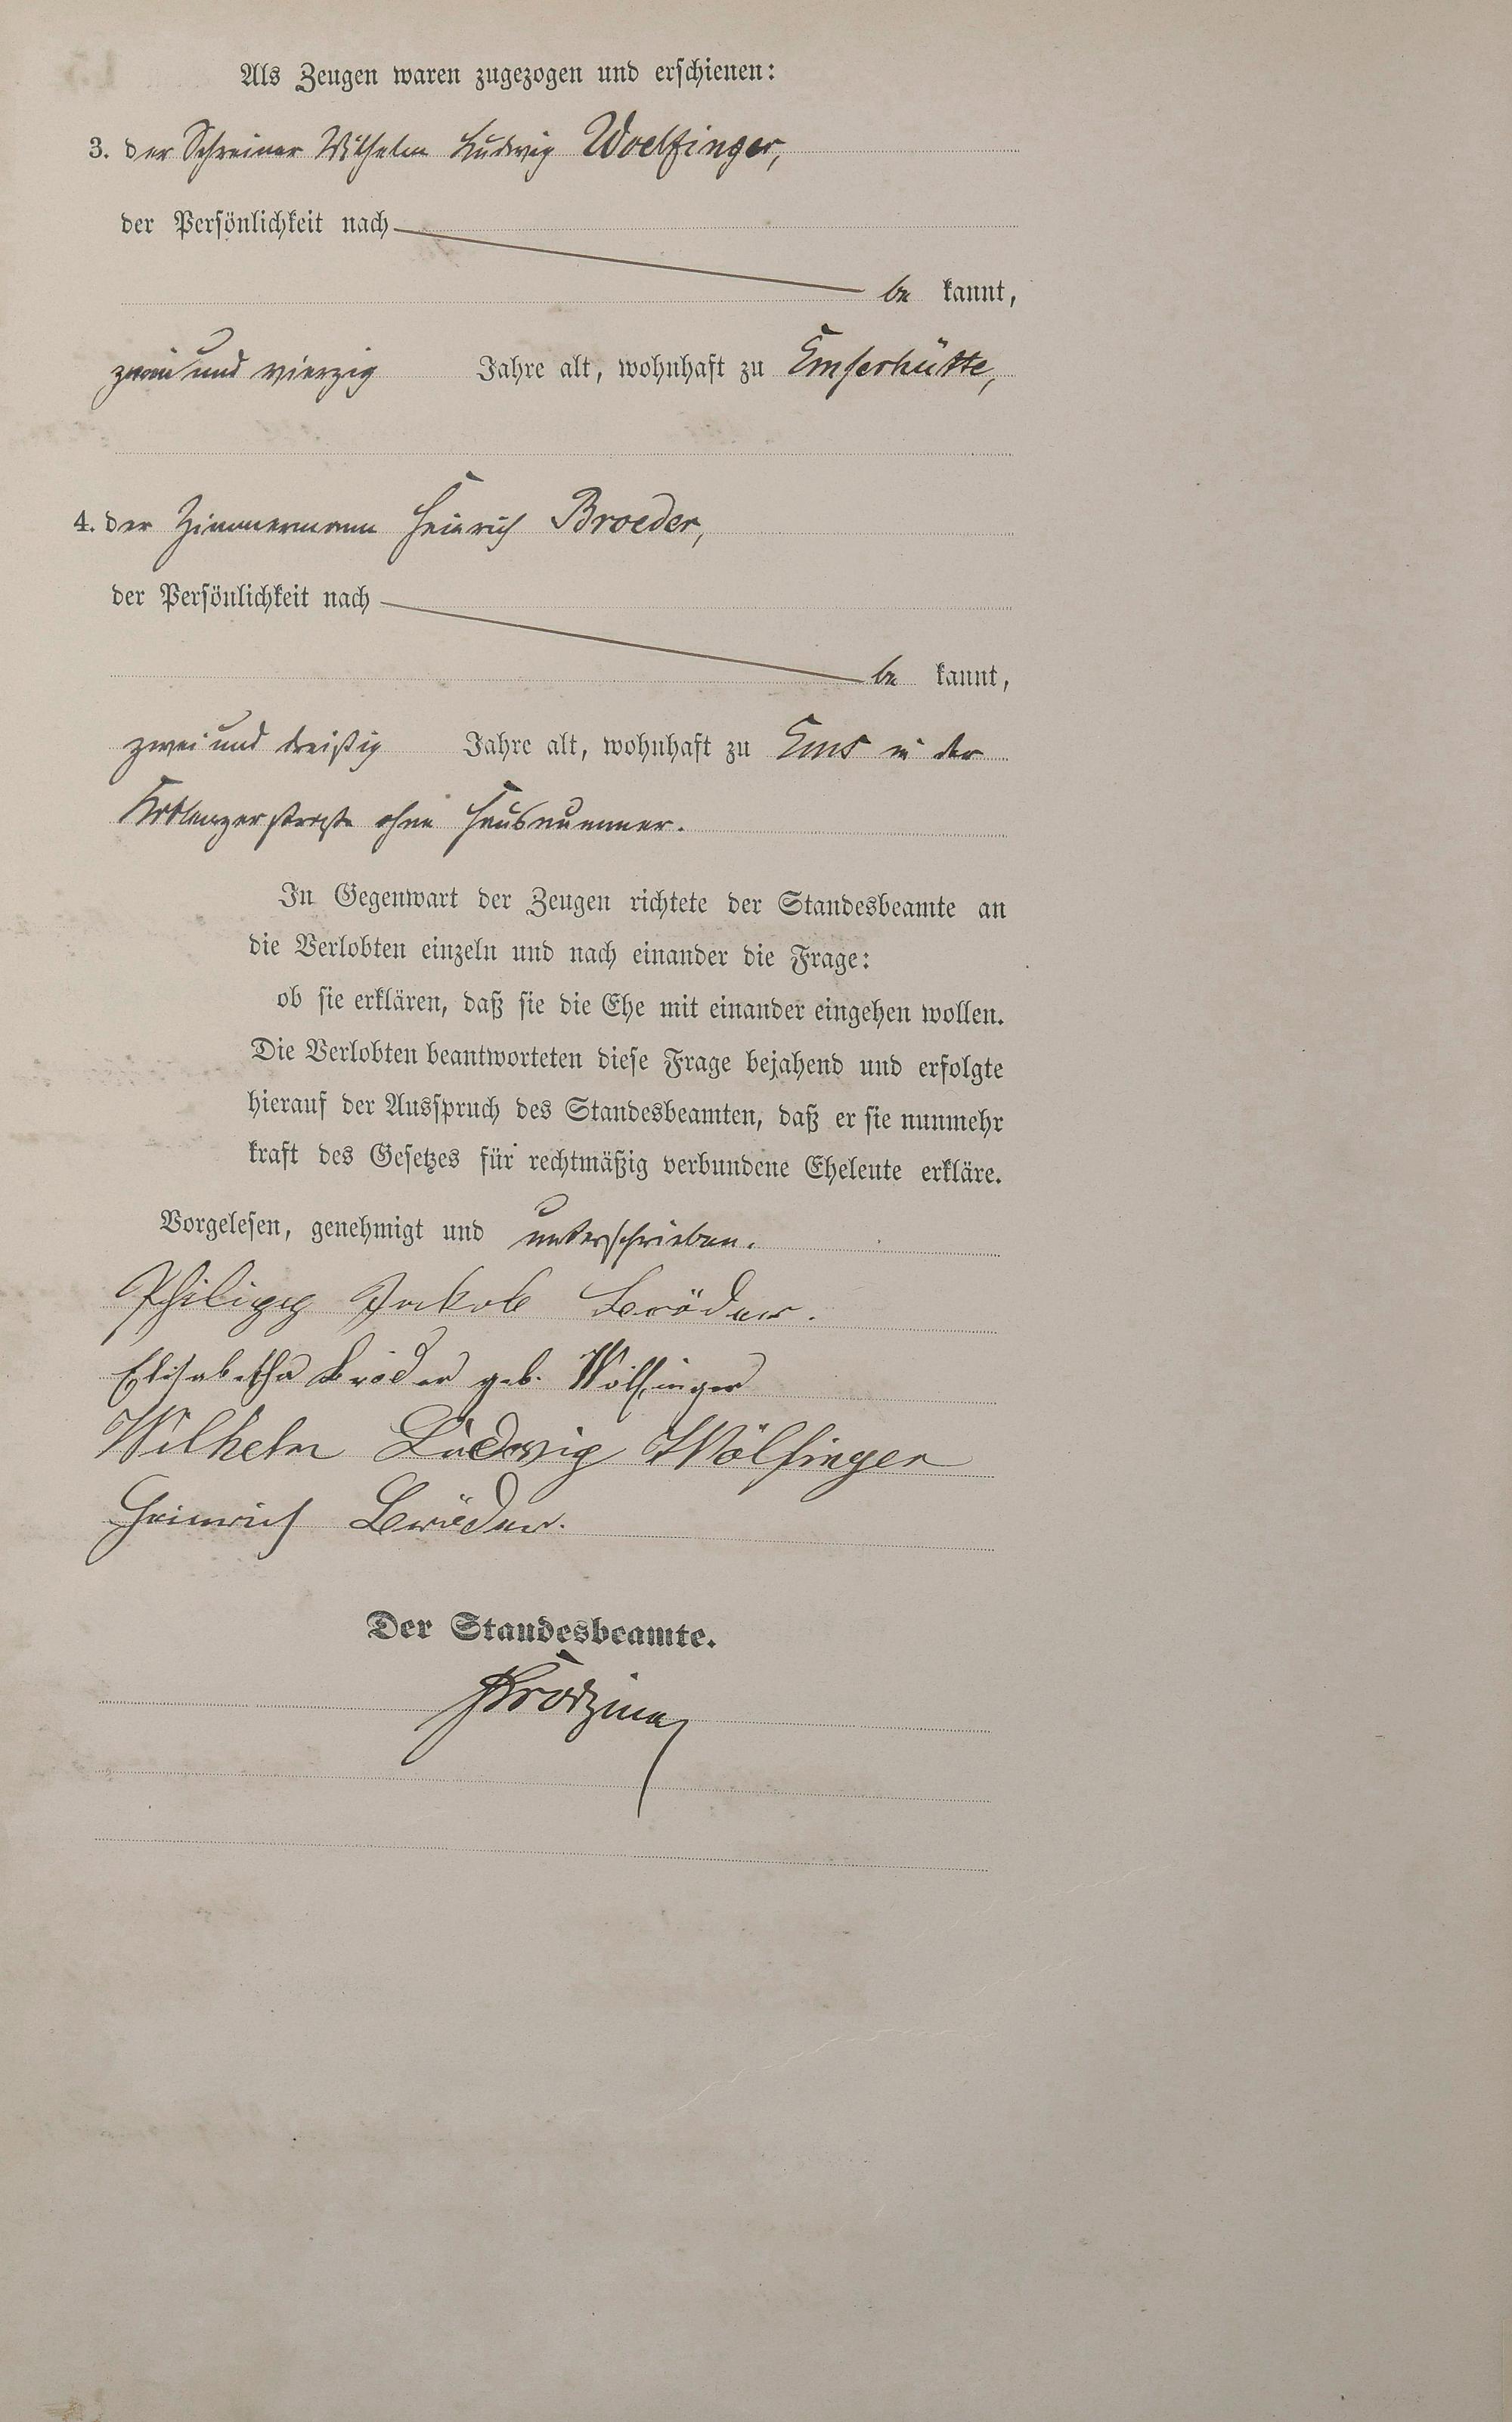 Als Zeugen waren zugezogen und erschienen:
3. der Schreiner Wilhelm Ludwig Woelfinger,
der Persönlichkeit nach
be kannt,
zwei und vierzig Jahre alt, wohnhaft zu Emserhütte,
4. der Zimmermann Heinrich Broeder,
der Persönlichkeit nach
be kannt,
zwei und dreißig Jahre alt, wohnhaft zu Ems in der
Koblenzerstraße ohne Hausnummer.
In Gegenwart der Zeugen richtete der Standesbeamte an
die Verlobten einzeln und nach einander die Frage:
ob sie erklären, daß sie die Ehe mit einander eingehen wollen.
Die Verlobten beantworteten diese Frage bejahend und erfolgte
hierauf der Ausspruch des Standesbeamten, daß er sie nunmehr
kraft des Gesetzes für rechtmäßig verbundene Eheleute erkläre.
Vorgelesen, genehmigt und unterschrieben.
Philipp Jakob Bröder.
Elisabetha Bröder geb. Wölfinger
Wilhelm Ludwig Wölfinger
Heinrich Bröder.
Der Standesbeamte.